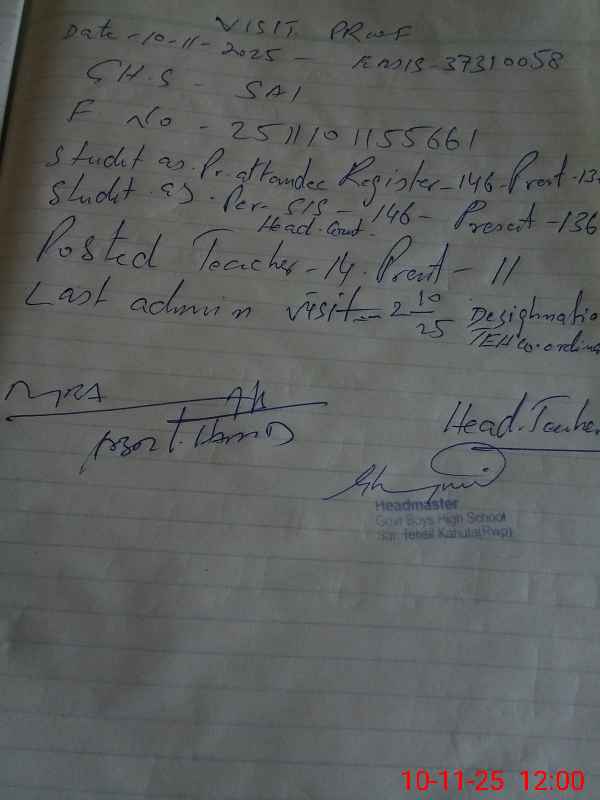 VISIT PROOF
Date - 10-11-2025 - EMIS-37310058
G.H.S - SAI
F No - 2511101155661
Studet as. Pr. attandec Register - 146 - Prent - 13
Studet as. Per - SIS - 146 - Present - 136
Head. Count.
Posted Teacher - 14. Prent - 11
Last admin visit - 2 10/25 Designatio
TEH co-ordina
Head. Teacher
Headmaster
Govt Boys High School
Sai Tehsil Kahuta(Rwp)
10-11-25 12:00